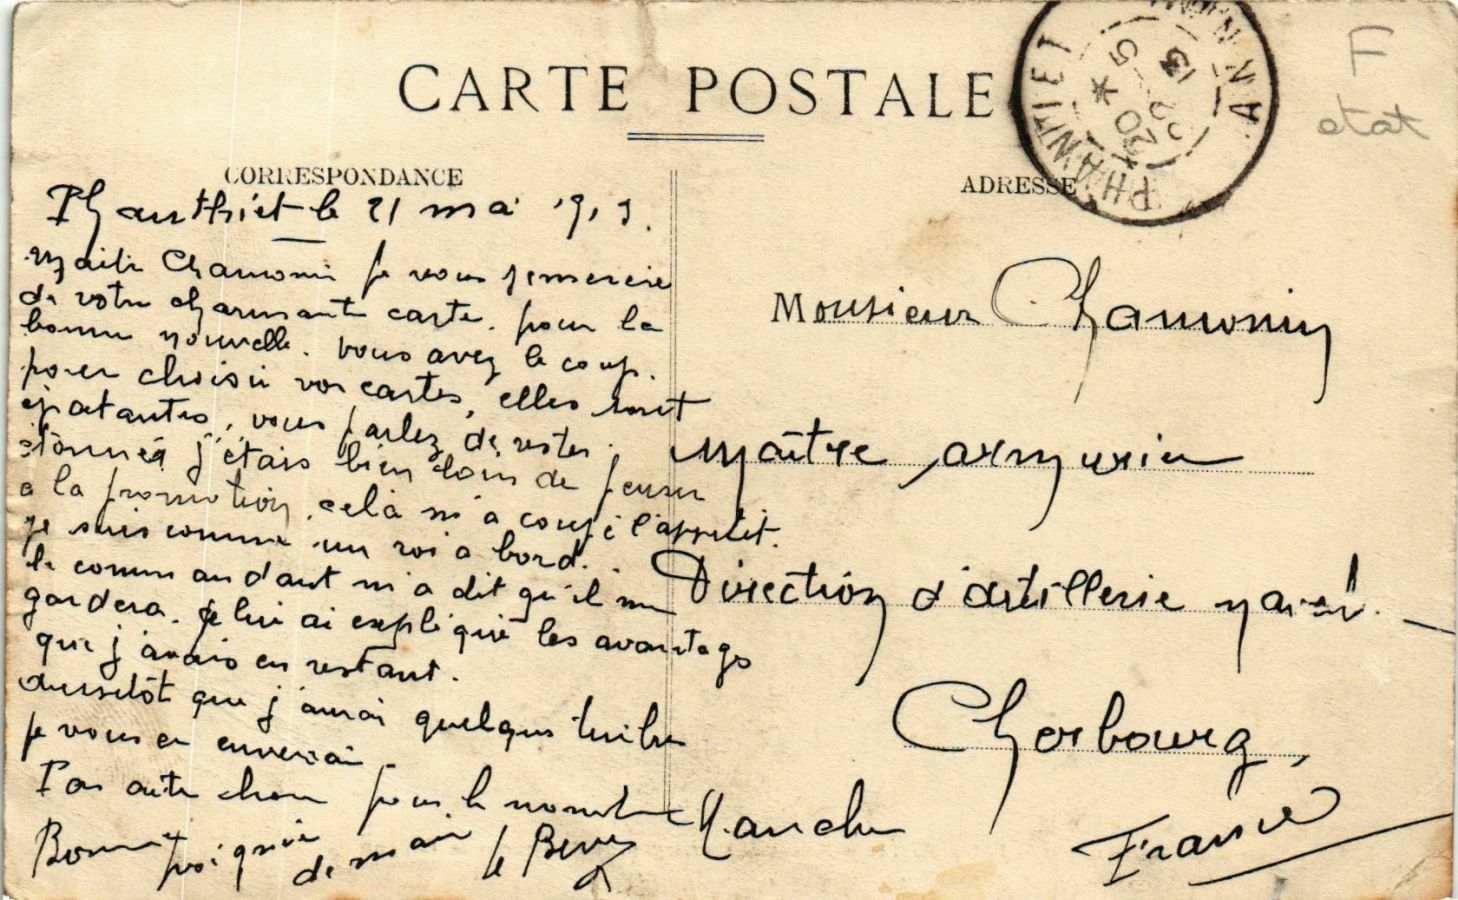 CARTE POSTALE
CORRESPONDANCE
ADRESSE
PHANTIET
ANNAM
20 * 5
13
F
etat
Phanthiet le 21 mai 1913.
Maitre Chamonin je vous remercie
de votre charmante carte. pour la
bonne nouvelle. vous avez le coup.
pour choisir vos cartes, elles sont
épatantes, vous parlez de rester
étonné j'étais bien loin de penser
a la promotion, celà m'a coupé l'appétit.
je suis comme un roi a bord.
le commandant m'a dit qu'il me
gardera. je lui ai expliqué les avantages
que j'avais en restant.
aussitôt que j'aurai quelques timbres
je vous en enverrai.
Pas autre chose pour le moment
Bonne poignée
de main le
Monsieur Chamonin
Maître armurier
Direction d'artillerie navale.
Cherbourg,
Manche
France